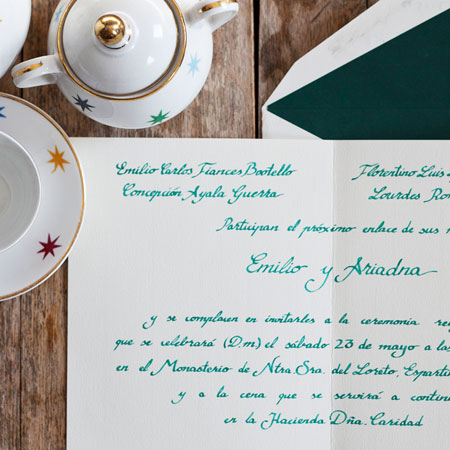 Emilio Carlos Frances Bootello
Concepción Ayala Guerra
Florentino Luis
Lourdes
Participan el próximo enlace de sus
Emilio y Ariadna
y se complacen en invitarles a la ceremonia
que se celebrará (D.m) el sábado 23 de mayo a las
en el Monasterio de Ntra. Sra. del Loreto,
y a la cena que se servirá a
en la Hacienda Dña. Caridad